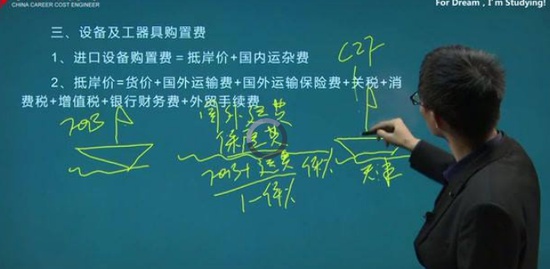 CHINA CAREER COST ENGINEER
For Dream , I'm Studying!
三、设备及工器具购置费
1、进口设备购置费 = 抵岸价+国内运杂费
2、抵岸价=货价+国外运输费+国外运输保险费+关税+消
费税+增值税+银行财务费+外贸手续费
国外运费
保险费
运费
1-保%
天津